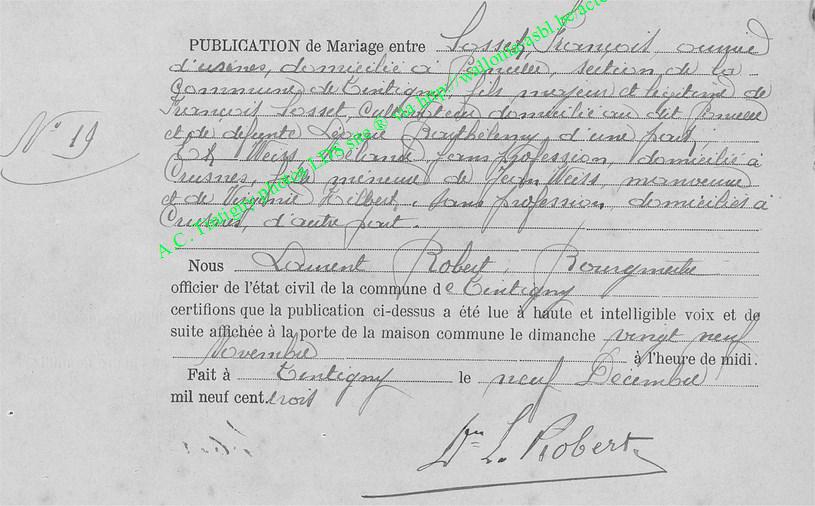 PUBLICATION de Mariage entre Posset, François ouvrier
d'usines, domicilié à section de la
Commune de Tintigny fils majeur et légitime de
François Cultivateur domicilié au dit
et de défunte Barthélemy d'une part,
Et Weiss, sans profession, domiciliée à
Crusnes, fille mineure de Jean Weiss, manoeuvre
et de Virginie Hilbert, sans profession, domiciliés à
Crusnes, d'autre part.
Nous Laurent Robert, Bourgmestre
officier de l'état civil de la commune de Tintigny
certifions que la publication ci-dessus a été lue à haute et intelligible voix et de
suite affichée à la porte de la maison commune le dimanche vingt neuf
Novembre à l'heure de midi.
Fait à Tintigny le neuf Décembre
mil neuf cent trois
Dr L. Robert
N° 19
A.C. Tintigny photos LDS site ® via http://wallonica